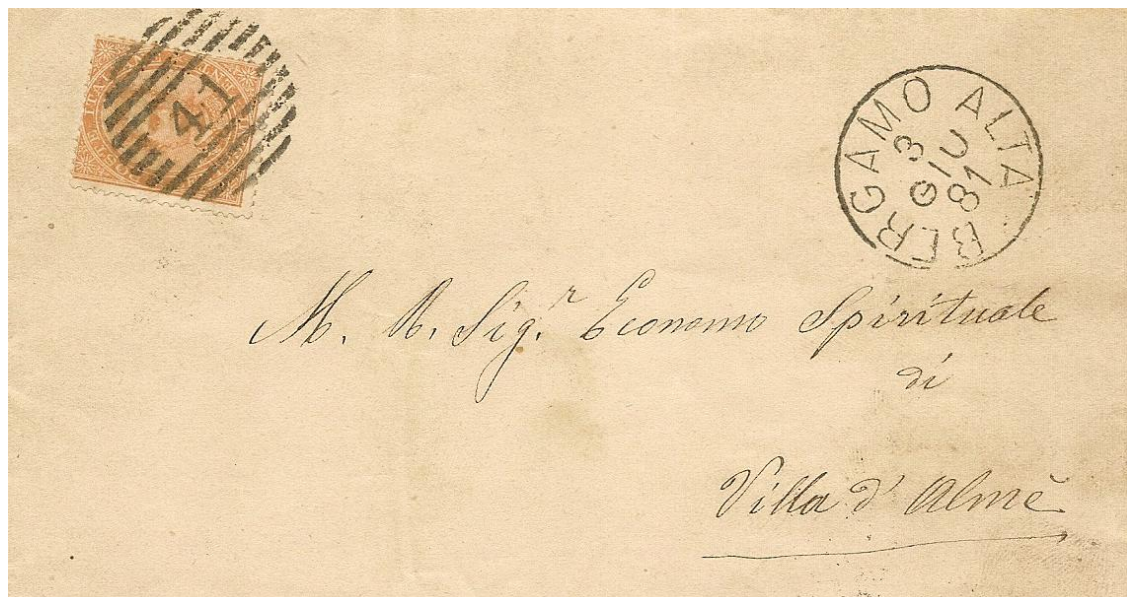 41
BERGAMO ALTA
3
GIU
81
M. R. Sig.r Economo Spirituale
di
Villa d' Almè